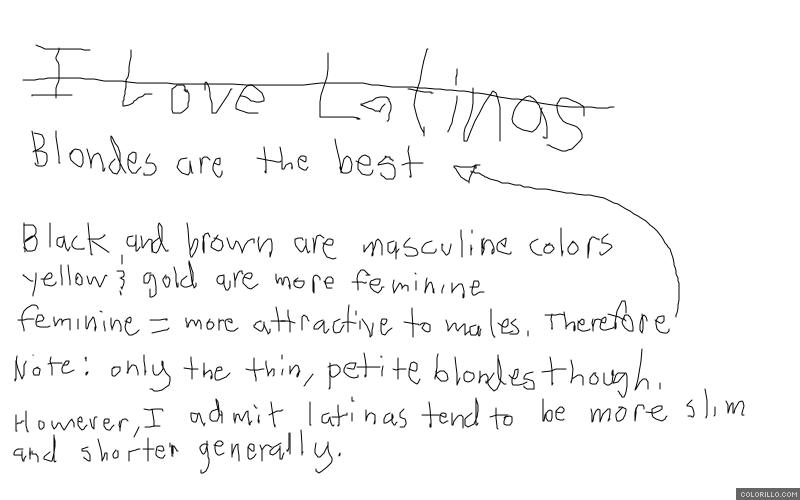 I Love Latinas
Blondes are the best
Black and brown are masculine colors
yellow & gold are more feminine
feminine = more attractive to males. Therefore
Note: only the thin, petite blondes though.
However, I admit latinas tend to be more slim
and shorter generally.
COLORILLO.COM